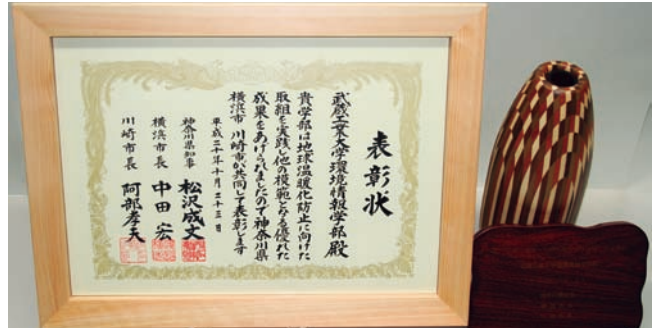 表彰状
武蔵工業大学環境情報学部殿
貴学部は地球温暖化防止に向けた
取組を実践し他の模範となる優れた
成果をあげられましたので神奈川県
横浜市 川崎市が共同して表彰します
平成二十年十月二十三日
神奈川県知事 松沢成文
横浜市長 中田宏
川崎市長 阿部孝夫